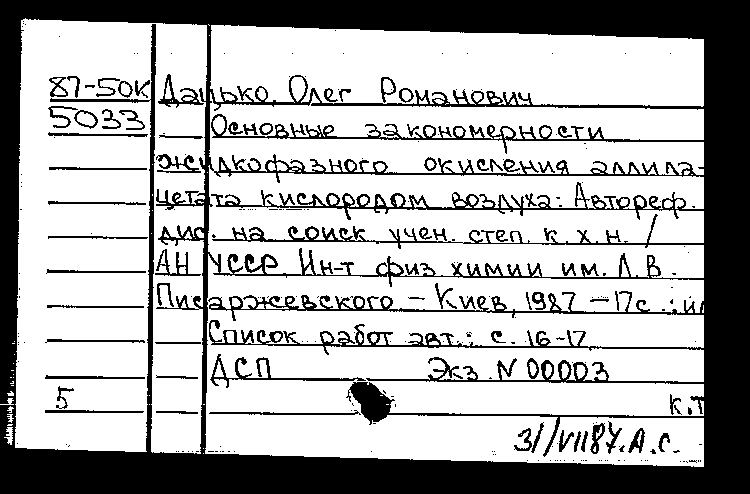 87-50К Дацько, Олег Романович
5033 Основные закономерности
жидкофазного окисления аллила-
цетата кислородом воздуха: Автореф.
дис. на соиск. учен. степ. к. х. н. /
АН УССР. Ин-т физ. химии им. Л. В.
Писаржевского – Киев, 1987 – 17с.: ил
Список работ авт.: с. 16-17
ДСП Экз. N 00003
5 к.т
31/VII87. А.С.